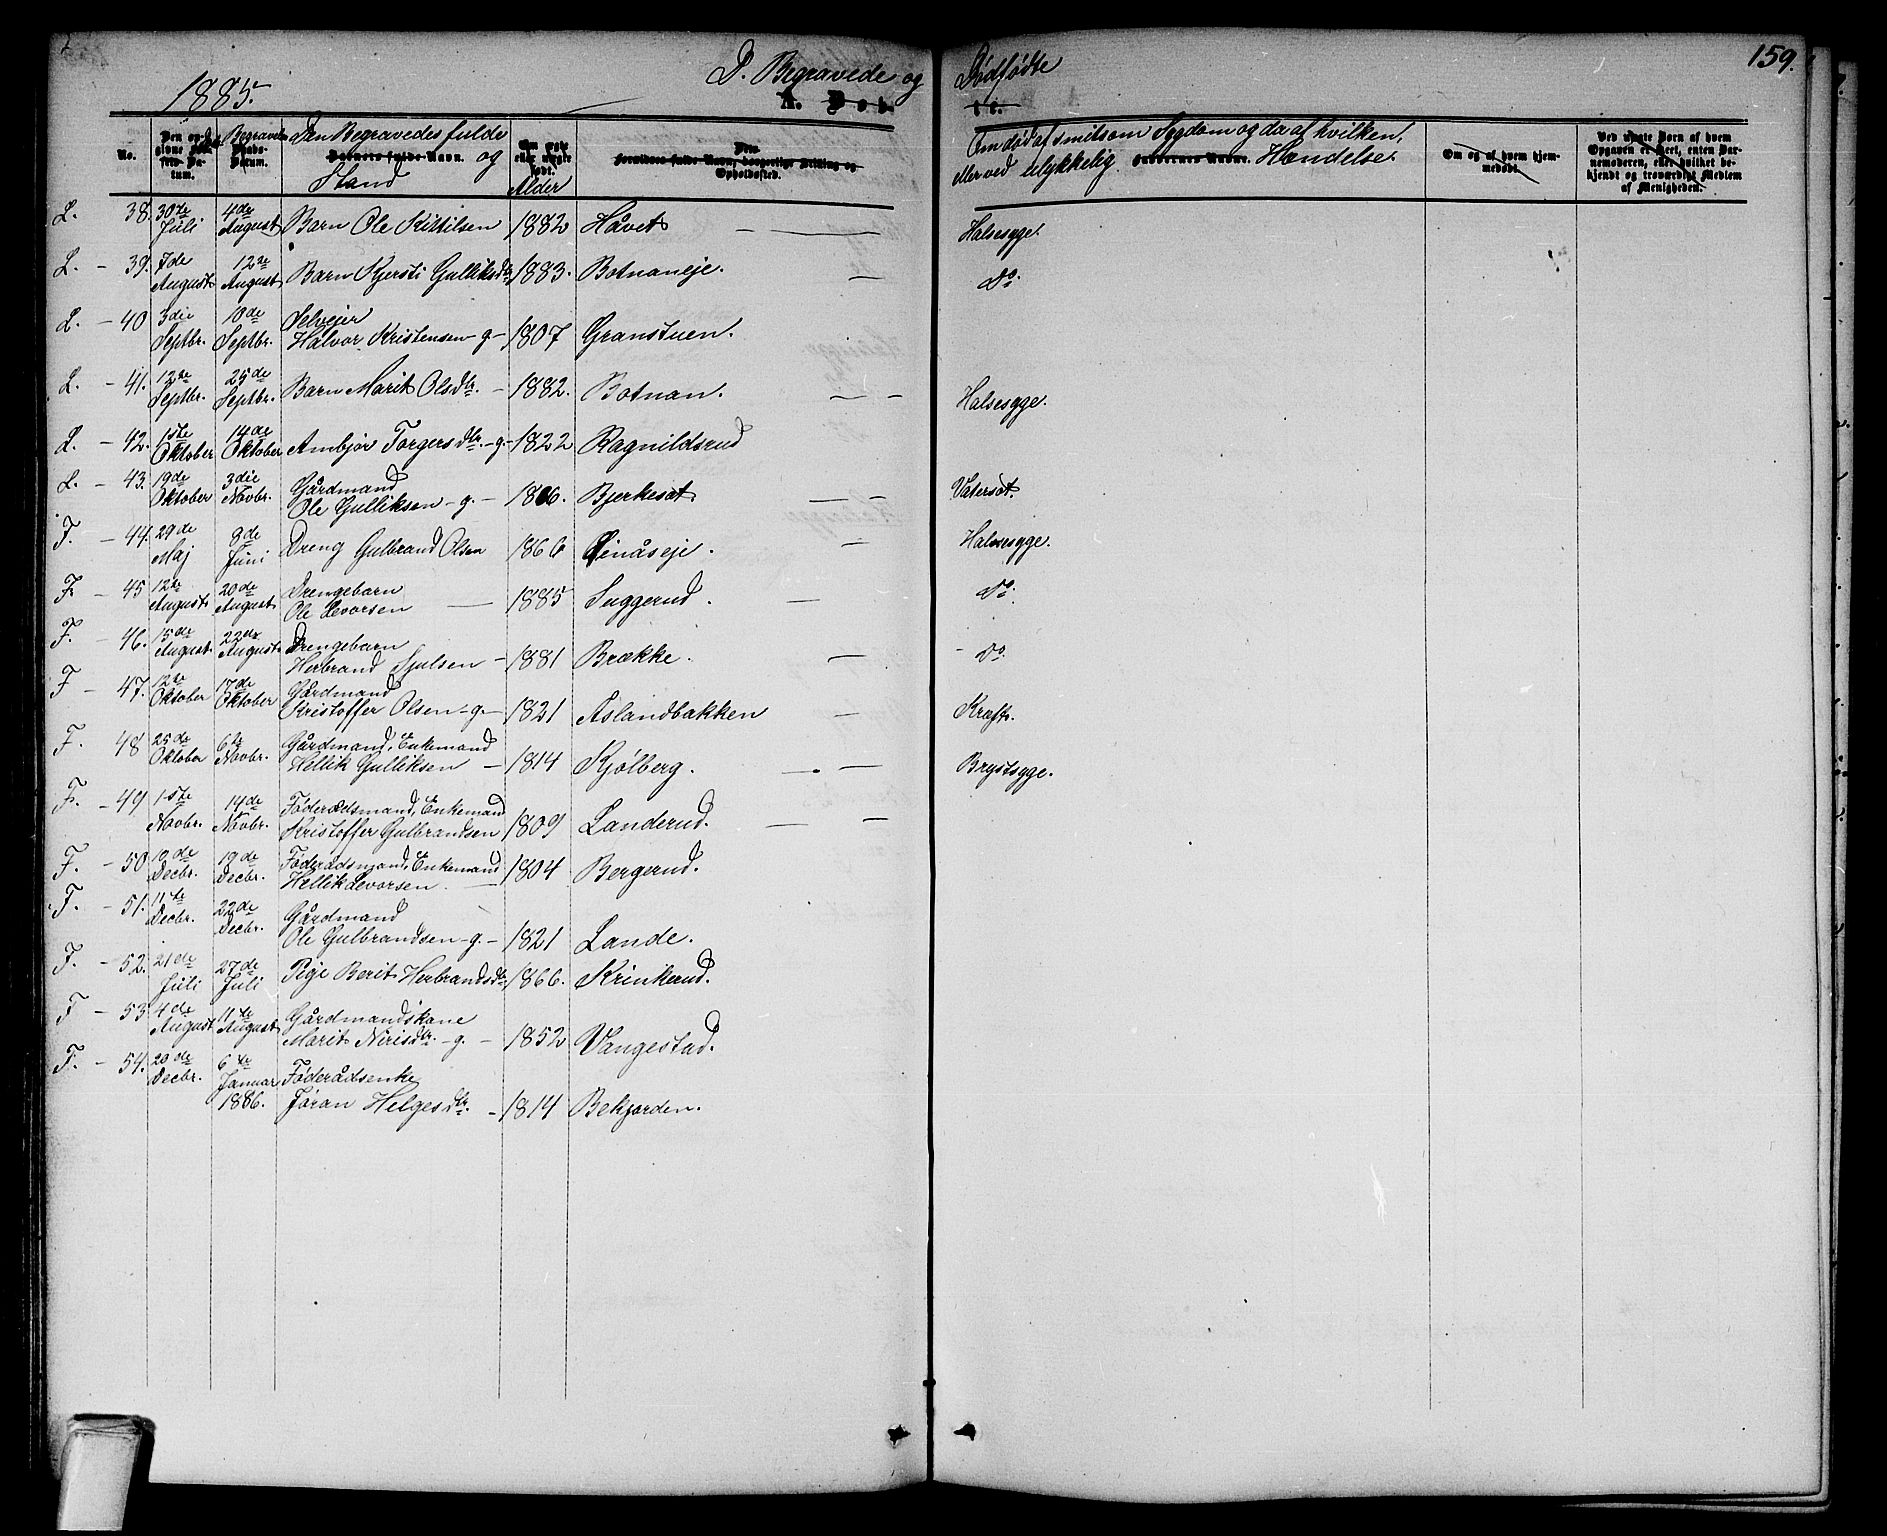 159.
1885.
D. Begravede og Dødfødte
A. Døb
te.
No.
Den opgivne Dato
Begravelsesdatum.
Den Begravedes fulde Navn og Stand
Om ægte eller uægte født. Alder
Forældres fulde Navn, borgerlige Stilling og Opholdssted.
Om død af smitsom Sygdom og da af hvilken,
eller ved ulykkelig Hændelse.
Om og af hvem hjemmedøbt.
Ved uægte Børn af hvem
Opgaven er skeet, enten Barnemoderen, eller hvilket bekjendt og troværdigt Medlem
af Menigheden.
L. 38. 30te Juli 4de August Barn Ole Kittilsen 1882 Håvet — Halsesyge.
L. - 39. 7de August 12te August Barn Kjersti Gulliksdtr 1883. Botnaneje. — do.
L. - 40 3die Septbr. 10de Septbr. Selvejer
Halvor Kristensen - g - 1807 Granstuen.
L. - 41. 12te Septbr. 25de Septbr. Barn Marit Olsdtr. - 1882. Botnan. — - Halsesyge.
L. - 42. 1ste Oktober 14de Oktober Ambjør Torgersdtr. - g. - 1822 Ragnildsrud
L. - 43. 19de Oktober 3die Novbr. Gårdmand
Ole Gulliksen - g. - 1806. Bjerkesat. — - Vatersot.
F. - 44. 29de Maj 8de Juni Dreng Gulbrand Olsen 1866 Linåseje. — Halsesyge.
F. - 45 12te August 20de August Drengebarn
Ole Levorsen — 1885 Suggerud. — do.
F. - 46. 15de August. 22de August Drengebarn
Herbrand Sjulsen - 1881 Brække. — - do.
F - 47. 12te Oktober 17de Oktober Gårdmand
Kristoffer Olsen - g. - 1821 Aslandbakken — Kræft.
F. - 48 25de Oktober 6te Novbr. Gårdmand, Enkemand
Hellik Gulliksen - 1814 Kjølberg. — Brystsyge.
F. - 49 1ste Novbr. 14de Novbr. Føderådsmand, Enkemand
Kristoffer Gulbrandsen 1809 Landerud. — -
F. - 50 10de Decbr. 19de Decbr. Føderådsmand, Enkemand
Hellik Levorsen. — 1804 Bergerud.
F. - 51. 11te Decbr. 22de Decbr. Gårdmand
Ole Gulbrandsen - g. - 1821 Lande.
F. - 52. 21de Juli 27de Juli Pige Berit Herbrandsdtr 1866. Krinkerud.
F - 53. 4de August 11te August Gårdmandskone
Marit Nirisdtr. - g. - 1852 Vangestad.
F. - 54. 20de Decbr. 6te Januar 1886. Føderådsenke
Jøran Helgesdtr. - 1814 Bekjorden.